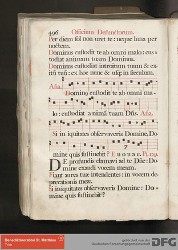 496 Officium Defunctorum.
Per diem sol non uret te: neque luna per
noctem.
Dominus custodit te ab omni malo: cus-
todiat animam tuam Dominus.
Dominus custodiat introitum tuum & ex-
itum tuum: ex hoc nunc & usque in sæculum.
Aña.
Dominus custodit te ab omni ma-
lo: custodiat animam tuam Dñs. Aña.
Si iniquitates observaveris Domine, Do-
mine quis sustinebit? Ps. 129.
De profundis clamavi ad te Dñe: Do-
mine exaudi vocem meam.
Fiant aures tuæ intendentes: in vocem de-
precationis meæ.
Si iniquitates observaveris Domine: Do-
mine quis sustinebit?
Benediktinerabtei St. Matthias
Trier
DFG